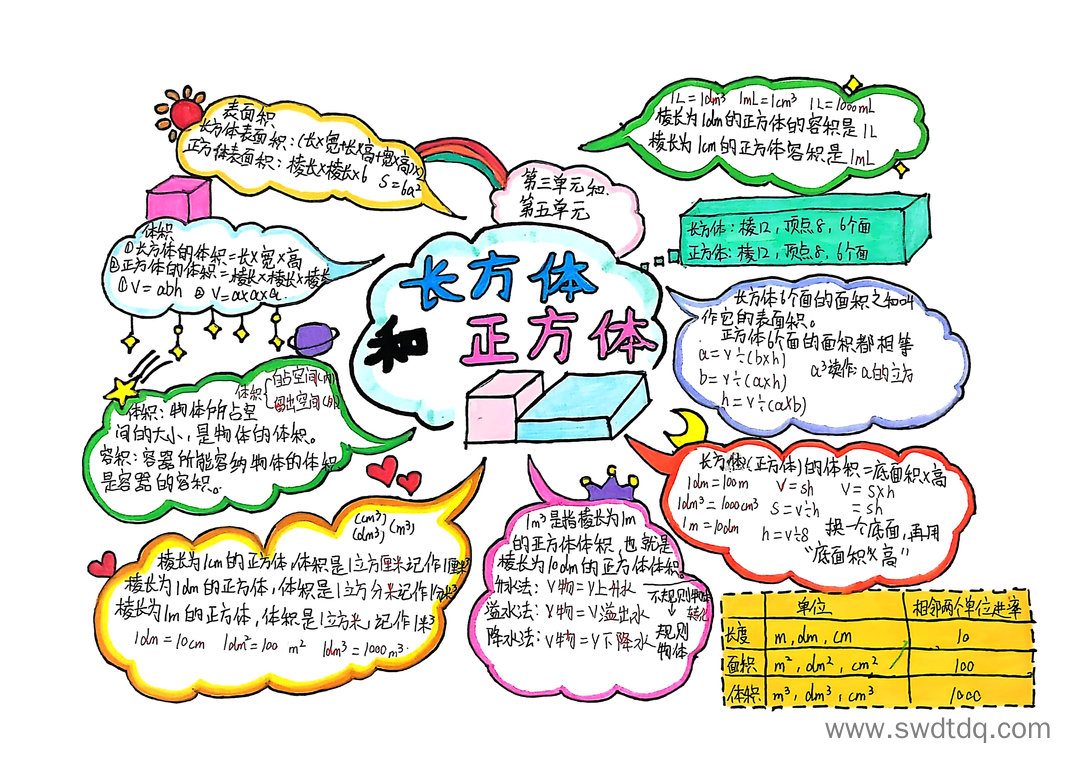 表面积
长方体表面积：(长×宽+长×高+宽×高)×2
正方体表面积：棱长×棱长×6 S=6a²
第三单元和
第五单元
1L=1dm³ 1mL=1cm³ 1L=1000mL
棱长为1dm的正方体的容积是1L
棱长为1cm的正方体容积是1mL
长方体：棱12，顶点8，6个面
正方体：棱12，顶点8，6个面
体积
①长方体的体积=长×宽×高
②正方体的体积=棱长×棱长×棱长
①V=abh ②V=a×a×a
长方体
和 正方体
长方体6个面的面积之和叫
作它的表面积。
正方体6个面的面积都相等
a=V÷(b×h) a³读作：a的立方
b=V÷(a×h)
h=V÷(a×b)
体积
占空间(外)
留出空间(内)
体积：物体所占空
间的大小，是物体的体积。
容积：容器所能容纳物体的体积
是容器的容积。
长方体(正方体)的体积=底面积×高
1dm=100m V=sh V=S×h
1dm³=1000cm³ S=V÷h =sh
1m=10dm h=V÷8 换一个底面，再用
“底面积×高”
(cm³)
(dm³) (m³)
棱长为1cm的正方体，体积是1立方厘米记作1厘米³
棱长为1dm的正方体，体积是1立方分米记作1分米³
棱长为1m的正方体，体积是1立方米，记作1米³
1dm=10cm 1dm²=100 m² 1dm³=1000m³
1m³是指棱长为1m
的正方体体积，也就是
棱长为10dm的正方体体积。
升水法：V物=V上升水
溢水法：V物=V溢出水
降水法：V物=V下降水
不规则物体
转化
规则
物体
单位 相邻两个单位进率
长度 m，dm，cm 10
面积 m²，dm²，cm² 100
体积 m³，dm³，cm³ 1000
www.swdtdq.com